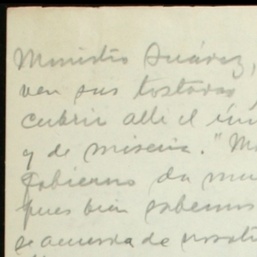 Ministro Suárez,
ven sus tostadas
cubrir alli el
y de miseria. "
Gobierno da
pues bien sabemos
se acuerda de